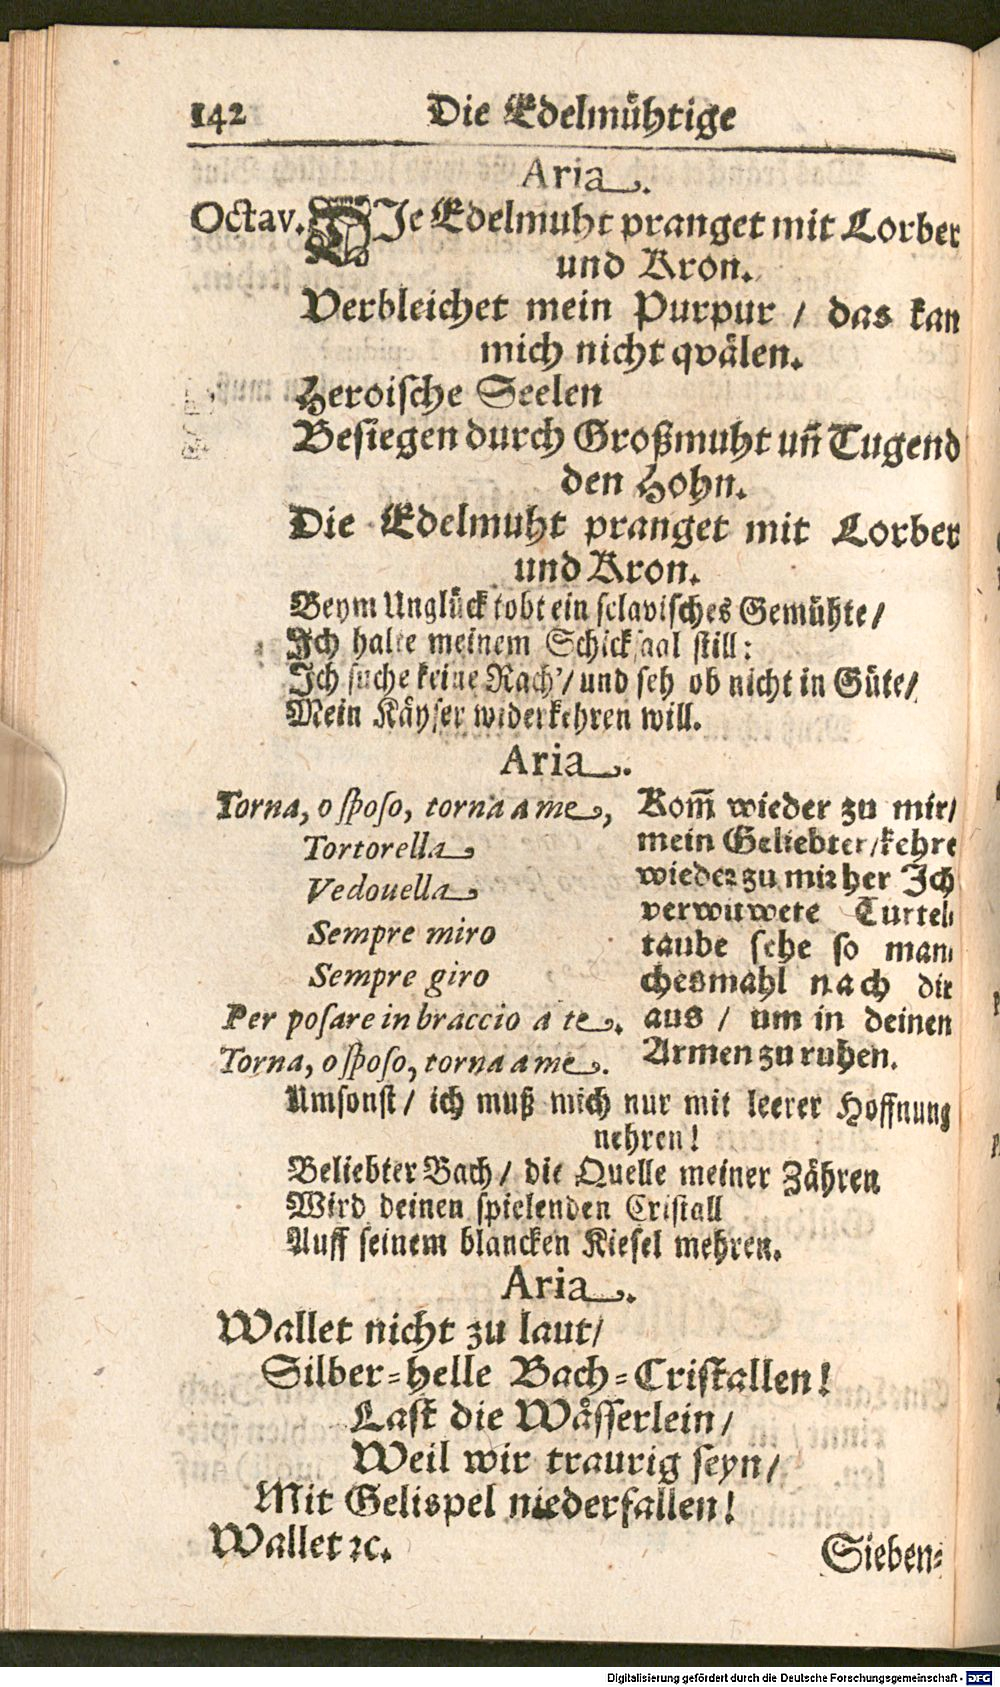 142 Die Edelmühtige
Aria.
Octav. DIe Edelmuht pranget mit Lorber
und Kron.
Verbleichet mein Purpur / das kan
mich nicht qvälen.
Heroische Seelen
Besiegen durch Großmuht uñ Tugend
den Hohn.
Die Edelmuht pranget mit Lorber
und Kron.
Beym Unglück tobt ein sclavisches Gemühte /
Ich halte meinem Schicksaal still:
Ich suche keine Rach' / und seh ob nicht in Güte /
Mein Käyser widerkehren will.
Aria.
Torna, o sposo, torna a me,
Tortorella
Vedouella
Sempre miro
Sempre giro
Per posare in braccio a te.
Torna, o sposo, torna a me.
Kom̃ wieder zu mir /
mein Geliebter / kehre
wieder zu mir her Ich
verwitwete Turtel-
taube sehe so man-
chesmahl nach dir
aus / um in deinen
Armen zu ruhen.
Umsonst / ich muß mich nur mit leerer Hoffnung
nehren!
Beliebter Bach / die Quelle meiner Zähren
Wird deinen spielenden Cristall
Auff seinem blancken Kiesel mehren.
Aria.
Wallet nicht zu laut /
Silber-helle Bach-Cristallen!
Last die Wässerlein /
Weil wir traurig seyn /
Mit Gelispel niederfallen!
Wallet ꝛc.
Sieben-
Digitalisierung gefördert durch die Deutsche Forschungsgemeinschaft - DFG